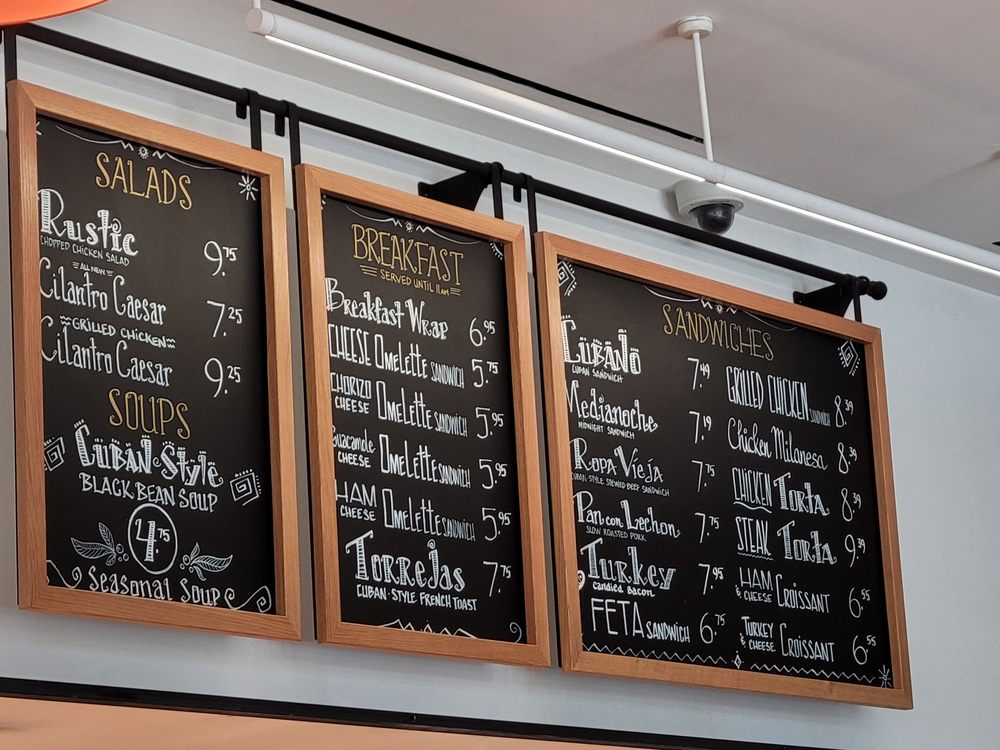 SALADS
Rustic 9.75
CHOPPED CHICKEN SALAD
ALL NEW
Cilantro Caesar 7.25
GRILLED CHICKEN
Cilantro Caesar 9.25
SOUPS
CUBAN-Style
BLACK BEAN SOUP
4.75
Seasonal Soup
BREAKFAST
SERVED UNTIL 11AM
Breakfast Wrap 6.95
CHEESE Omelette SANDWICH 5.75
CHORIZO CHEESE Omelette SANDWICH 5.95
Guacamole CHEESE Omelette SANDWICH 5.95
HAM CHEESE Omelette SANDWICH 5.95
Torrejas 7.75
CUBAN-STYLE FRENCH TOAST
SANDWICHES
CUBANO 7.49
CUBAN SANDWICH
Medianoche 7.19
MIDNIGHT SANDWICH
Ropa Vieja 7.75
CUBAN STYLE STEWED BEEF SANDWICH
Pan con Lechon 7.75
SLOW ROASTED PORK
Turkey 7.95
candied Bacon
FETA SANDWICH 6.75
GRILLED CHICKEN SANDWICH 8.39
Chicken Milanesa 8.39
CHICKEN Torta 8.39
STEAK Torta 9.39
HAM & CHEESE CROISSANT 6.55
TURKEY & CHEESE CROISSANT 6.55